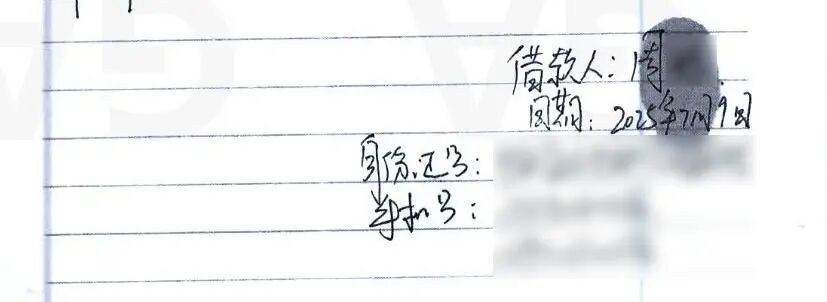 借款人：周
日期：2025年7月9日
身份证号：
手机号：